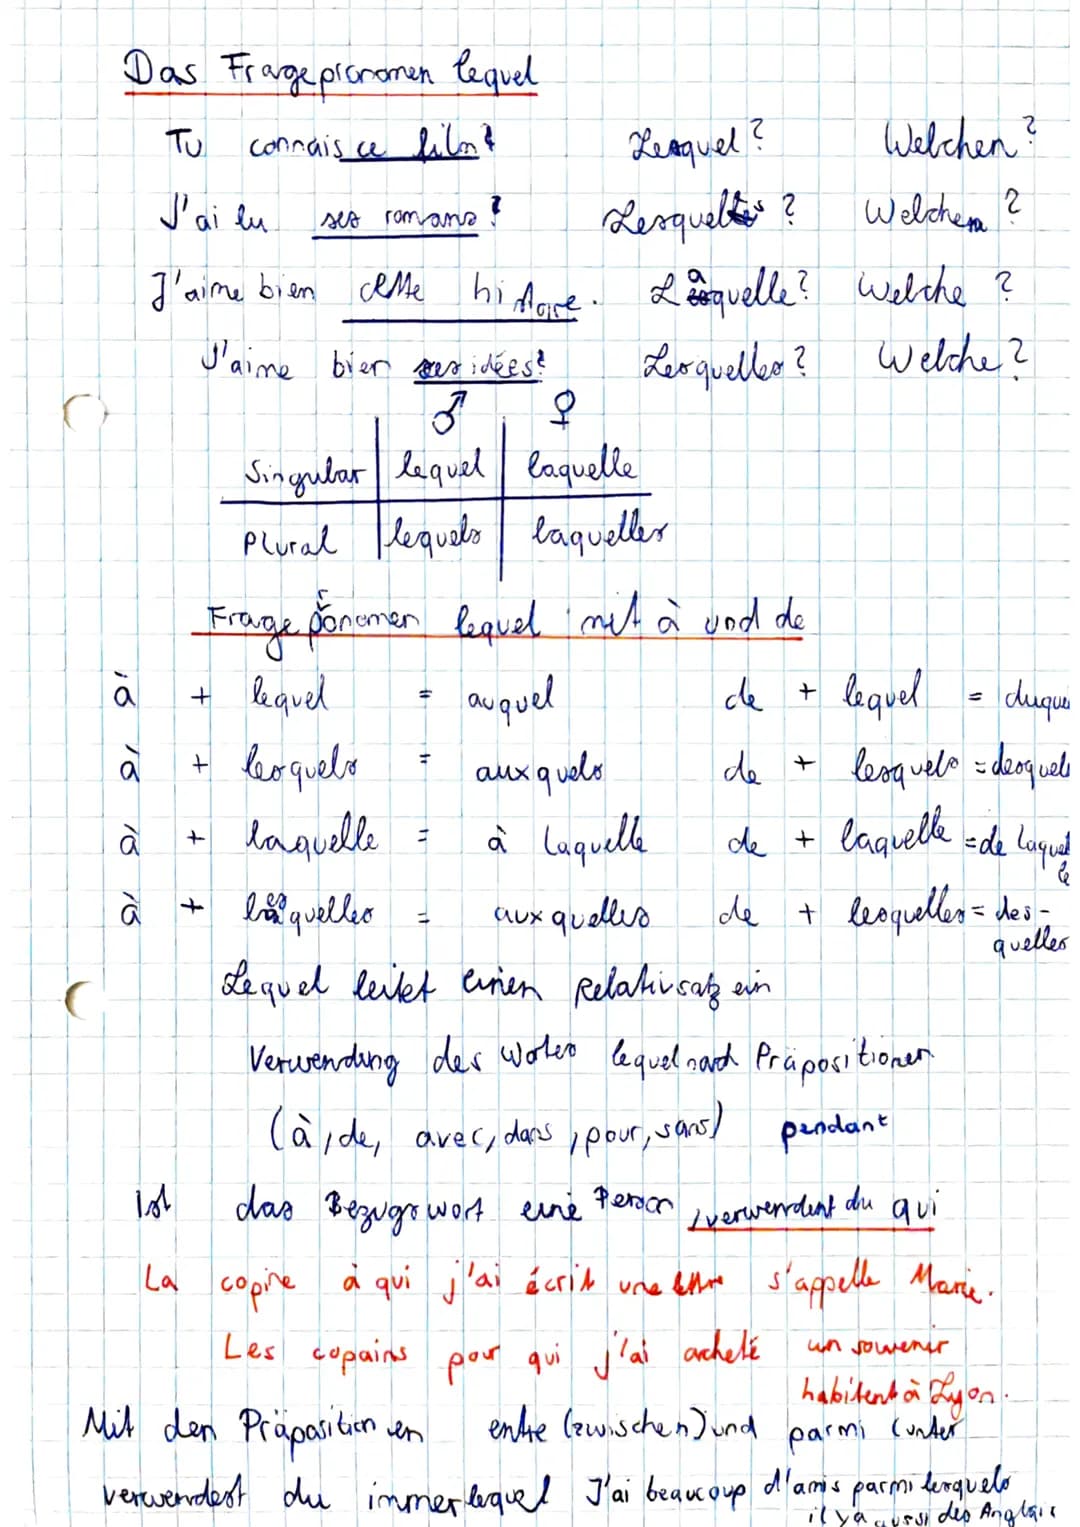 Das Fragepronomen lequel
Tu connais ce film? Lequel? Welchen?
J'ai lu ses romans? Lesquels? Welchen?
J'aime bien cette histoire. Laquelle? Welche?
J'aime bien ses idées? Lesquelles? Welche?
♂ ♀
Singular lequel laquelle
Plural lequels laquelles
Fragepronomen lequel mit à und de
à + lequel = auquel de + lequel = duque
à + lesquels = auxquels de + lesquels = desquel
à + laquelle = à laquelle de + laquelle = de laquel
le
à + lesquelles = auxquelles de + lesquelles = des-
quelles
Lequel leitet einen Relativsatz ein
Verwendung des Wortes lequel nach Präpositionen
(à, de, avec, dans, pour, sans) pendant
Ist das Bezugswort eine Person, verwendest du qui
La copine à qui j'ai écrit une lettre s'appelle Marie.
Les copains pour qui j'ai acheté un souvenir
habitent à Lyon.
Mit den Präpositionen entre (zwischen) und parmi (unter
verwendest du immer lequel J'ai beaucoup d'amis parmi lesquels
il y a aussi des Anglais